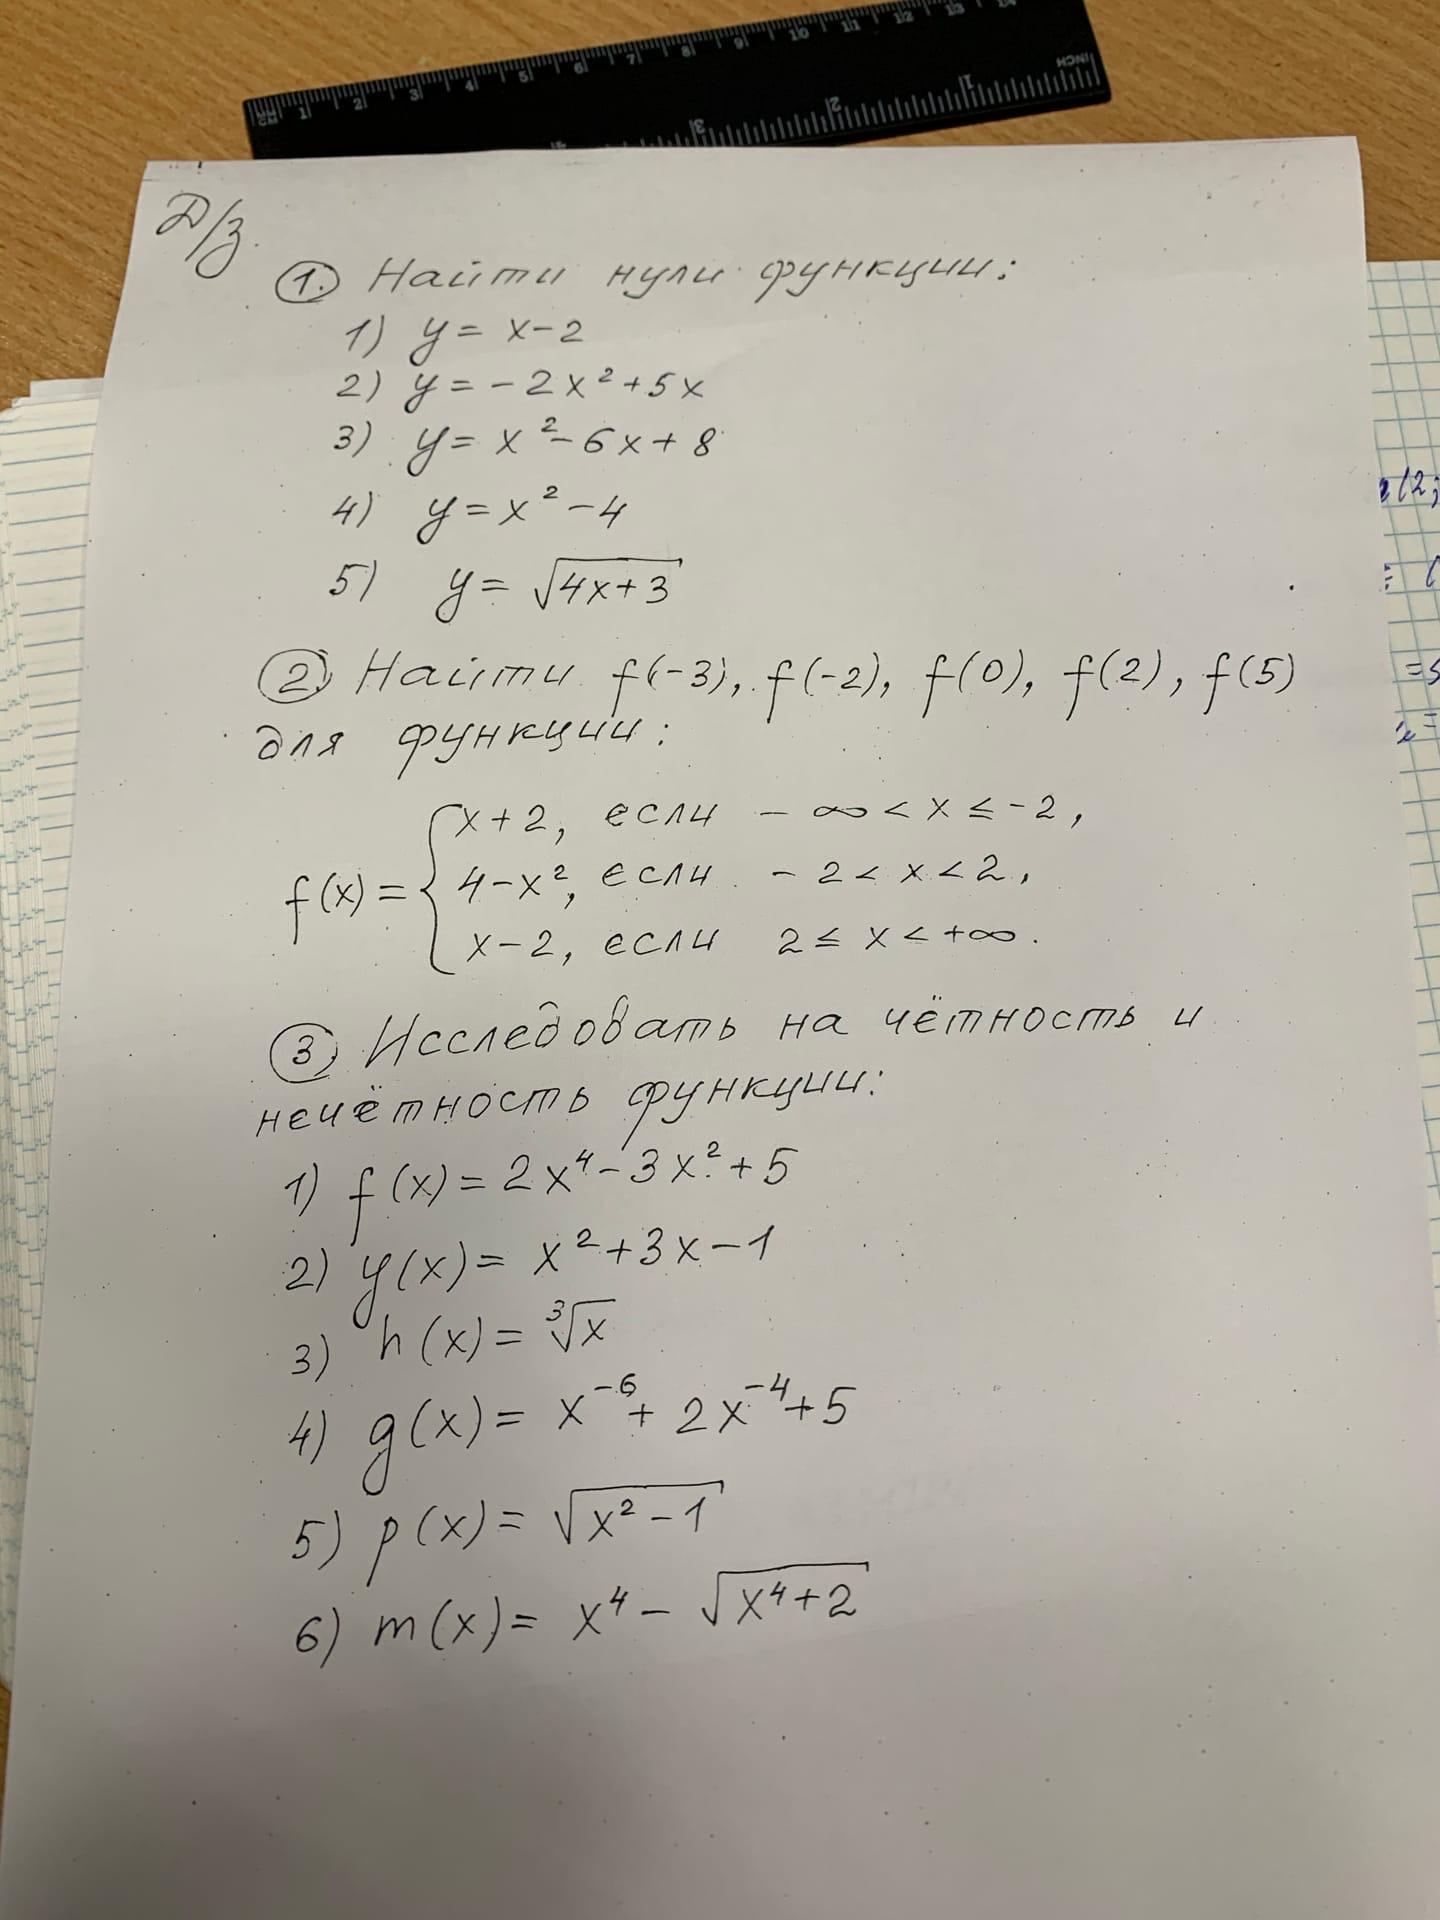 MM 1 2 3 4 5 6 7 8 9 10 11 12 13 14
CM
INCH 1 2 3
Д/з.
1. Найти нули функции:
1) y = x-2
2) y = -2x²+5x
3) y = x²-6x+8
4) y = x²-4
5) y = √(4x+3)
2. Найти f(-3), f(-2), f(0), f(2), f(5)
для функции:
x+2, если -∞<x≤-2,
f(x)= { 4-x², если -2<x<2,
x-2, если 2≤x<+∞.
3. Исследовать на чётность и
нечётность функции:
1) f(x)=2x⁴-3x²+5
2) y(x)= x²+3x-1
3) h(x)= ³√x
4) g(x)= x⁻⁶+2x⁻⁴+5
5) p(x)= √(x²-1)
6) m(x)= x⁴-√(x⁴+2)